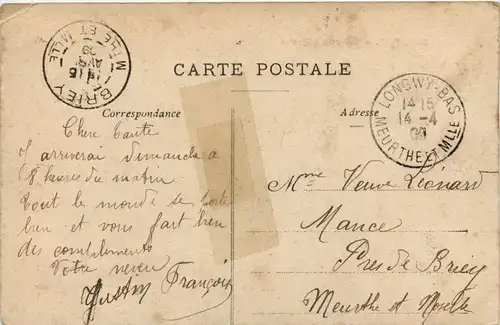 BRIEY
MTHE ET MLLE
15
AVRIL
09
CARTE POSTALE
LONGWY-BAS
14 15
14 - 4
09
MEURTHE ET MLLE
Correspondance
Adresse
Chere tante
J arriverai dimanche a
8 heures du matin
Tout le monde se porte
bien et vous fait bien
des compliments
Votre neveu
Justin François
Mme Veuve Léonard
Mance
Pres de Briey
Meurthe et Moselle